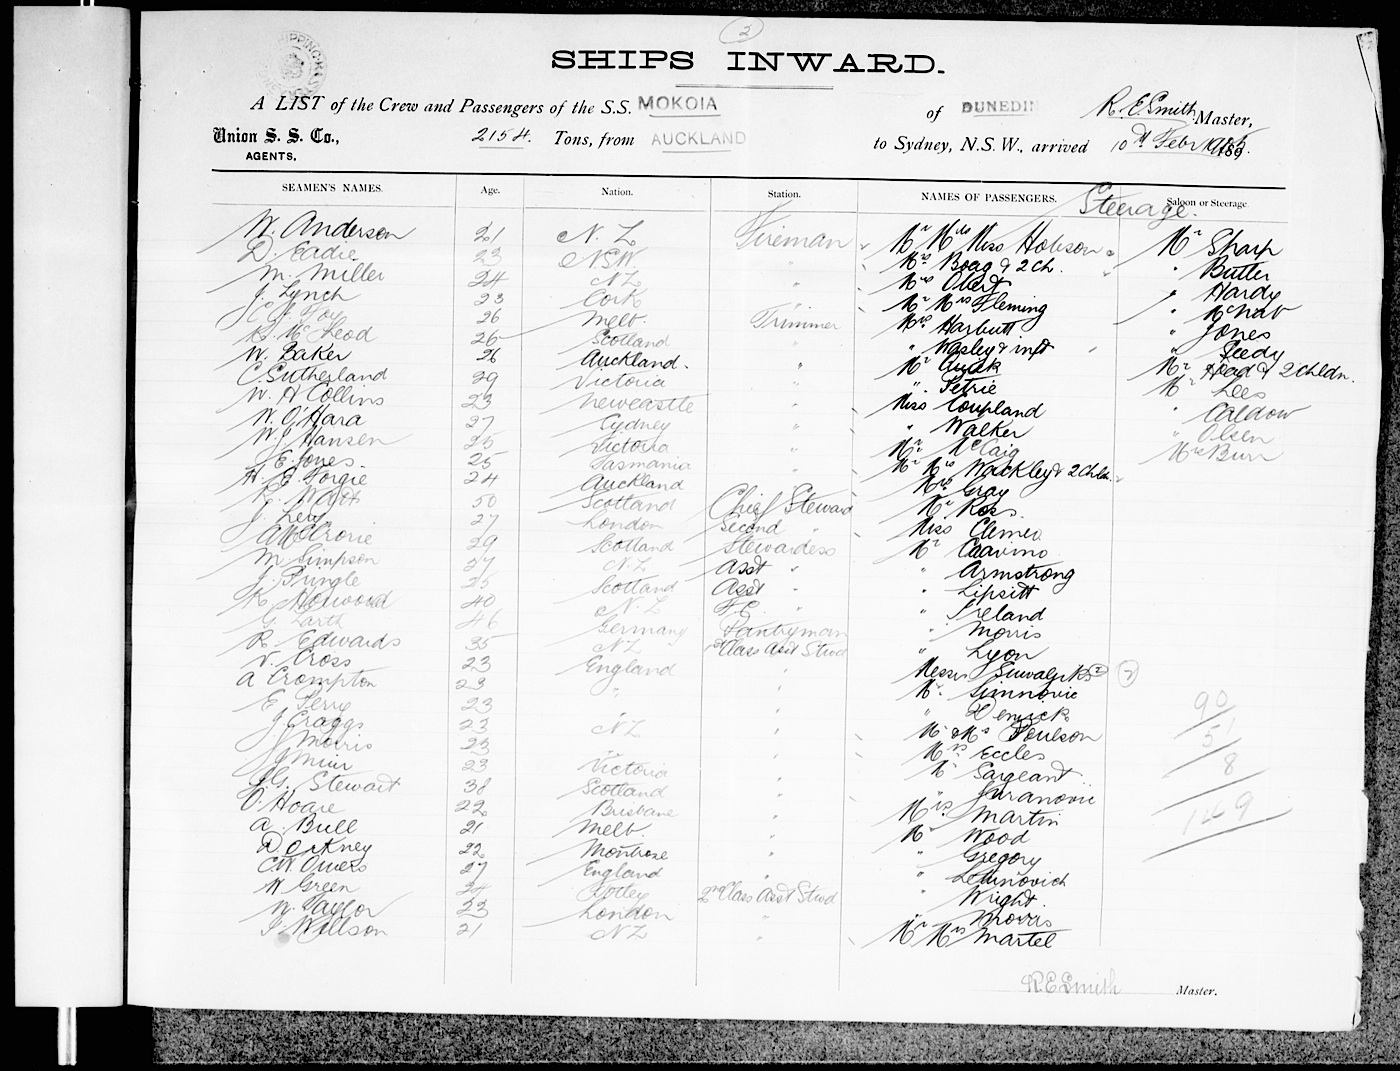 2
SHIPS INWARD.
A LIST of the Crew and Passengers of the S.S. MOKOIA of DUNEDIN R. E. Smith Master,
Union S. S. Co., 2154. Tons, from AUCKLAND to Sydney, N.S.W., arrived 10th Febr
AGENTS,
SEAMEN'S NAMES. Age. Nation. Station. NAMES OF PASSENGERS. Saloon or Steerage.
Steerage.
W. Anderson 21 N. Z Fireman Mr Mrs Miss Hobson Mr Sharp
D. Eadie 23 NSW " Mrs Boag & 2 Ch. " Butler
M. Miller 24 NZ " Mrs " Hardy
J. Lynch 23 Cork " Mr Mrs Fleming " McNab
C. J. Foy 26 Melb. Trimmer Mrs Harbutt " Jones
McLeod 26 Scotland " " Wasley & inft "
W. Baker 26 Auckland. " Mr Quirk Mr Head & 2 Chldn.
C. Sutherland 29 Victoria " " Petrie Mr Lees
W. H Collins 23 Newcastle " Miss Coupland " Caldow
W. O'Hara 27 Sydney " " Walker " Olsen
W. J Hansen 25 Victoria " Mr McCaig Mrs Burr
J. E. Jones. 25 Tasmania " Mr Mrs Wackley & 2 Chldn.
H. E. Forgie 24 Auckland " Mrs Gray
50 Scotland Chief Steward Mr Ross.
J. Levy 27 London Second " Miss
29 Scotland Stewardess Mr
M. Simpson 37 N. Z Asst " " Armstrong
J. Pringle 25 Scotland Asst " " Lipsitt
R. Norwood 40 N. Z F.C. " " Ireland
G. 46 Germany Pantryman " Morris
R. Edwards 35 NZ Class Asst Stwd " Lyon
V. Cross 23 England " Messrs 2 2
A Crompton 23 " " Mr
E. Perry 23 " "
J Craggs 23 NZ " Mr & Mrs Poulson
J Morris 23 " " Mrs Eccles
J Muir 23 Victoria " Mr Sargeant
J. G. Stewart 38 Scotland " "
O. Hoare 22 Brisbane " Mrs Martin
A. Bull 21 Melb. " Mr Wood
D Orkney 22 Montrose " " Gregory
C. W. Owers 27 England " "
W Green 24 Otley 2nd Class Asst Stwd " Wright.
W. Taylor 23 London " " Morris
J. Willson 21 NZ " Mr Mrs Martel
90
51
8
149
R. E Smith Master.